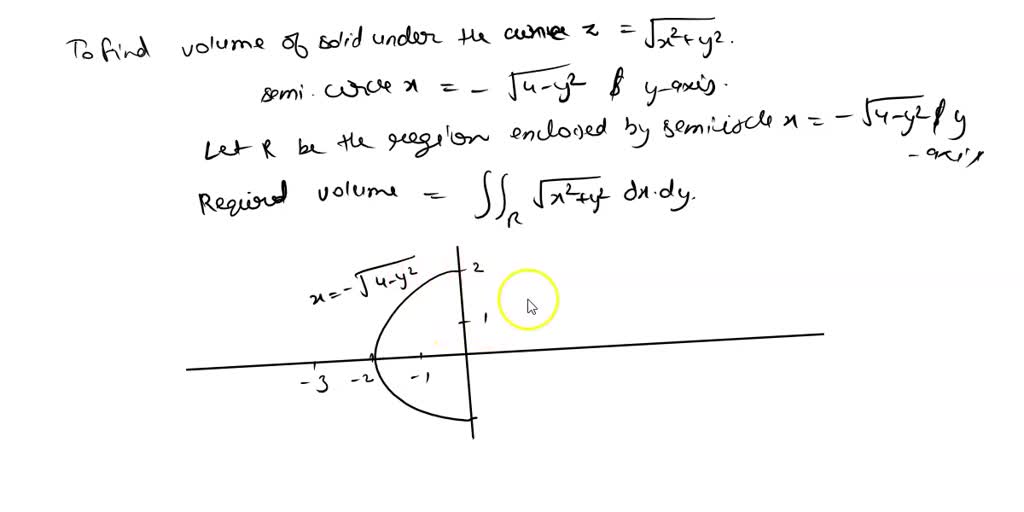 To find volume of solid under the curve z = √x²+y².
semi. circle x = - √4-y² & y-axis.
Let R be the region enclosed by semicircle x = -√4-y² & y
-axis
Required volume = ∬R √x²+y² dx.dy.
x=-√4-y²
2
1
-3 -2 -1